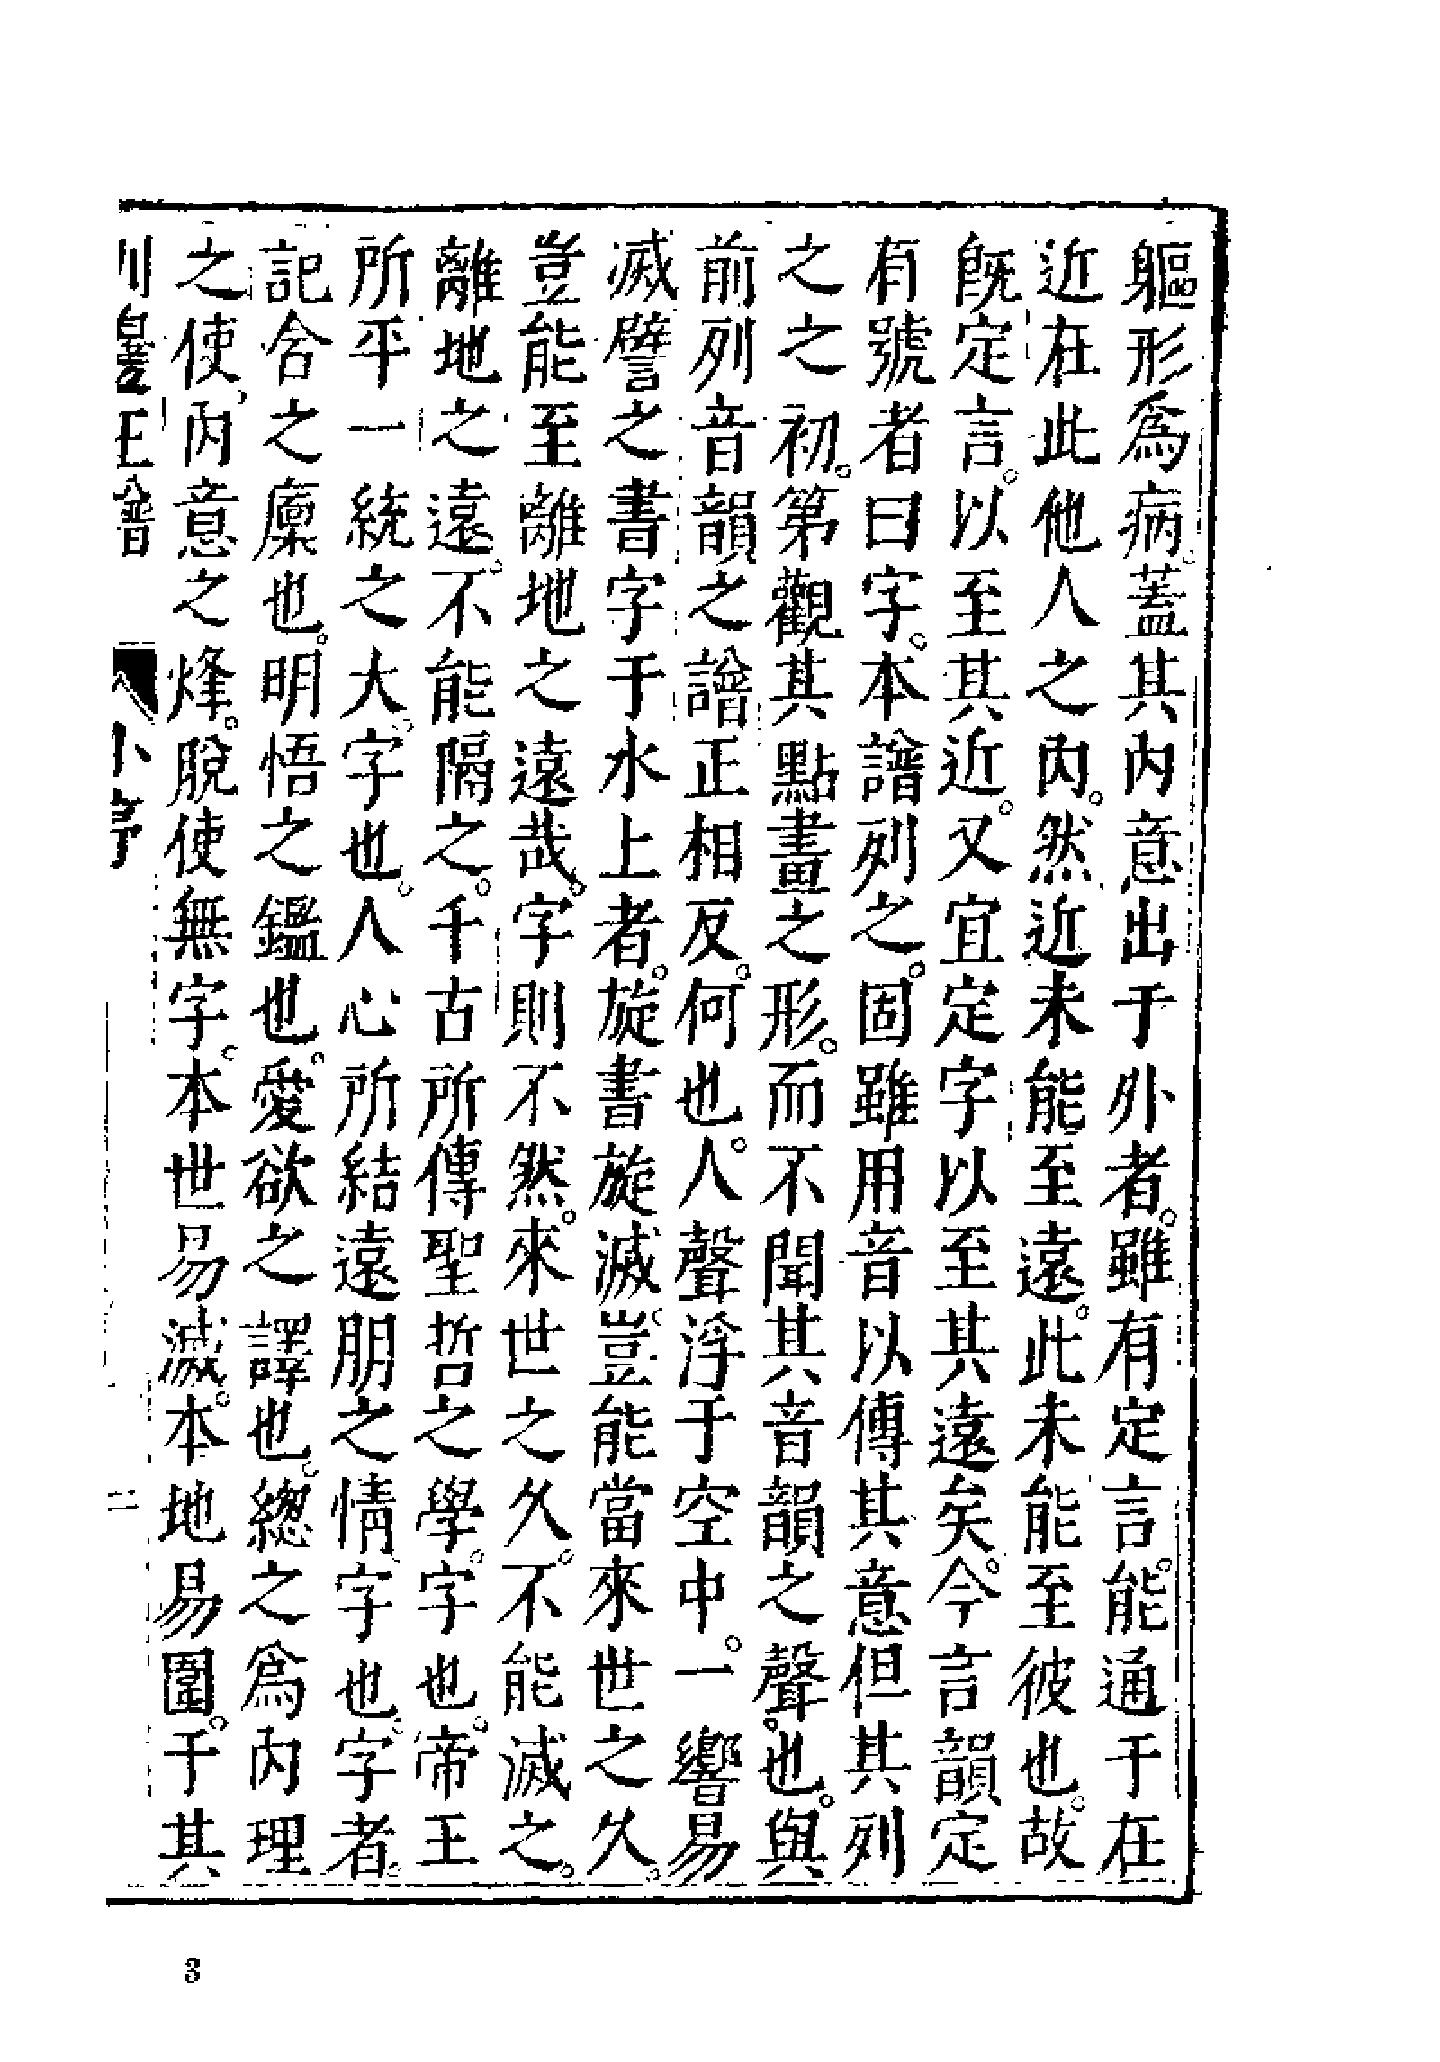 軀形爲病。蓋其內意出于外者。雖有定言。能通于在
近在此他人之內。然近未能至遠。此未能至彼也。故
旣定言。以至其近。又宜定字以至其遠矣。今言韻定
有號者曰字。本譜列之。固雖用音以傳其意但其列
之之初。第觀其點畫之形。而不聞其音韻之聲。也。與
前列音韻之譜正相反。何也。人聲浮于空中。一響易
滅譬之書字于水上者。旋書旋滅豈能當來世之久。
豈能至離地之遠哉。字則不然。來世之久。不能滅之。
離地之遠。不能隔之。千古所傳聖哲之學。字也。帝王
所平一統之大。字也。人心所結遠朋之情。字也。字者。
記含之廩也。明悟之鑑也。愛欲之譯也。總之爲內理
之使、內意之烽。脫使無字。本世易滅。本地易圍。于其
小序
二
3